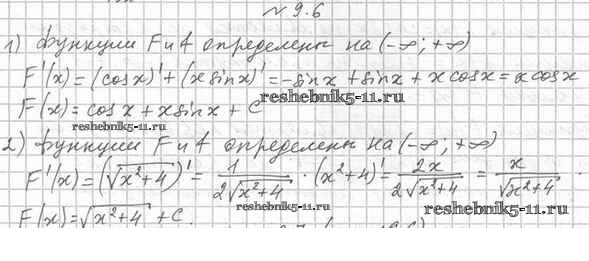 № 9.6
1) Функции F и f определены на (-∞; +∞)
F'(x) = (cosx)' + (x sinx)' = -sinx + sinx + x cosx = x cosx
F(x) = cosx + x sinx + C
reshebnik5-11.ru
reshebnik5-11.ru
2) Функции F и f определены на (-∞; +∞)
F'(x) = (√(x²+4))' = 1/(2√(x²+4)) · (x²+4)' = 2x/(2√(x²+4)) = x/√(x²+4) .
F(x) = √(x²+4) + C.
reshebnik5-11.ru
reshebnik5-11.ru